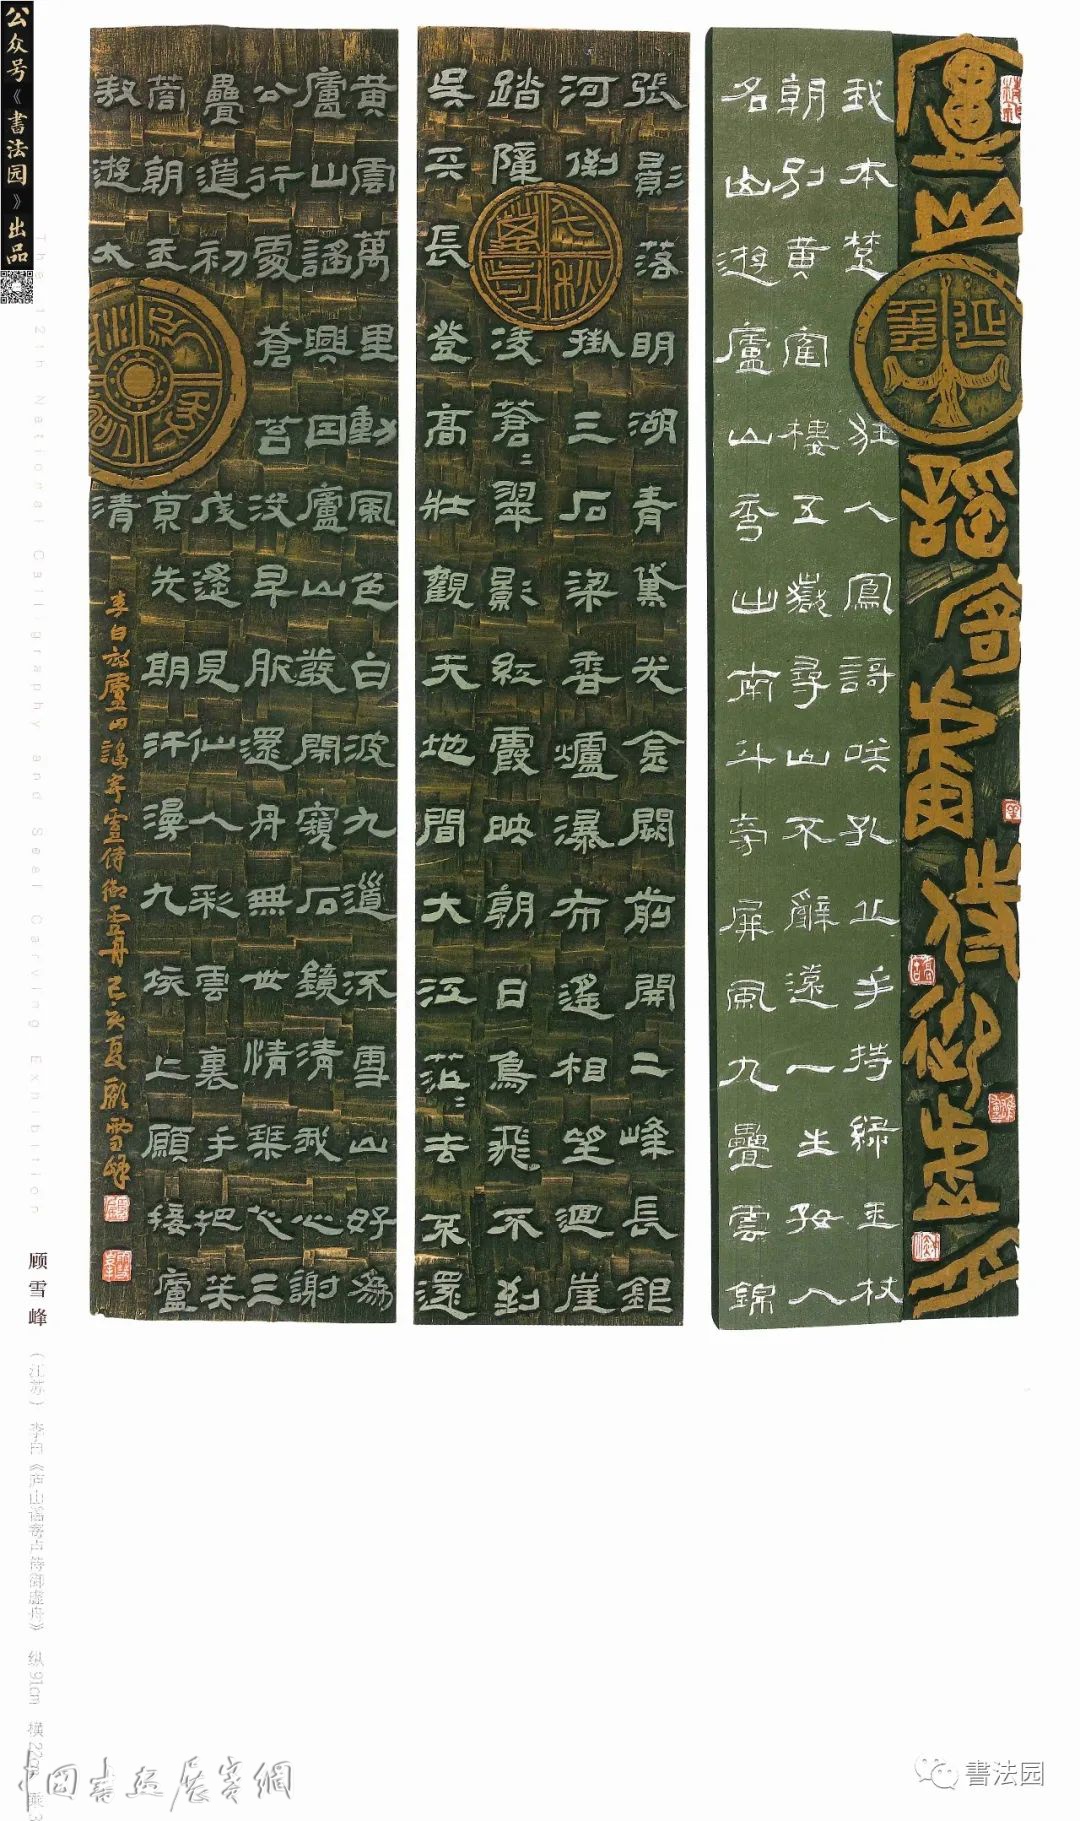 廬山謠寄盧侍御虛舟
我本楚狂人鳳謌咲孔丘手持綠玉杖
朝別黃崔樓五嶽尋山不辭遠一生好入
名山遊廬山秀出南斗旁屏風九疊雲錦
張影落明湖青黛光金闕前開二峰長銀
河倒掛三石梁香爐瀑布遙相望迴崖
踏障凌蒼〻翠影紅霞映朝日鳥飛不到
吳天長登高壯觀天地間大江茫〻去不還
黃雲萬里動風色白波九道流雪山好為
廬山謠興因廬山發閑窺石鏡清我心謝
公行處蒼苔沒早服還丹無世情琴心三
疊道初成遙見仙人彩雲裏手把芙
蓉朝玉京先期汗漫九垓上願接盧
敖遊太清
李白詩廬山謠寄盧侍御虛舟己亥夏顧雪峰
延年
千秋萬歲
公众号《書法园》出品
The 12th National Calligraphy and Seal Carving Exhibition
顾雪峰（江苏） 李白《庐山谣寄卢侍御虚舟》 纵91cm 横22cm 乘3
中國書畫展賽網
書法园